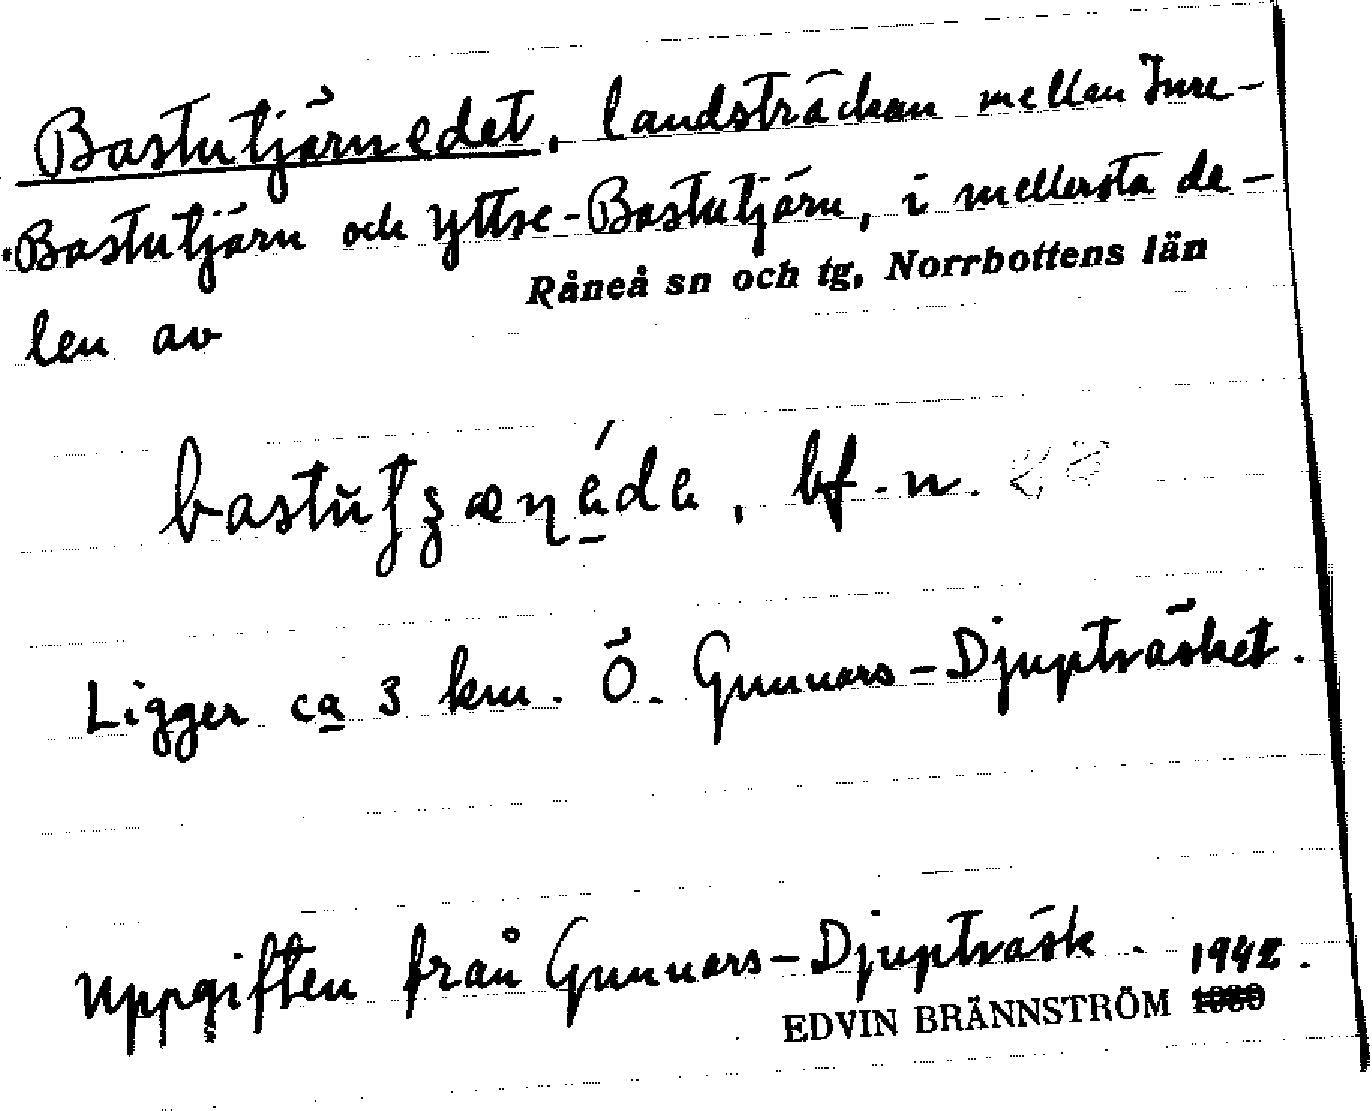 Bastutjärnedet, landsträckan mellan Inre-
Bastutjärn och Yttre-Bastutjärn, i mellersta de-
Råneå sn och tg, Norrbottens län
len av
bf. n.
Ligger ca 3 km. Ö. Gunnars-Djupträsket.
Uppgiften från Gunnars-Djupträsk. 1942.
EDVIN BRÄNNSTRÖM